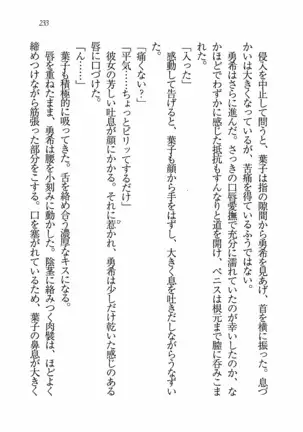 233
侵入を中止して問うと、葉子は指の隙間から勇希を見あげ、首を横に振った。息づ
かいは大きくなっているが、苦痛を得ているふうではない。
勇希はさらに進んだ。さっきの口唇愛撫で充分に濡れていたのが幸いしたのか、な
かほどでわずかに感じた抵抗もすんなりと道を開け、ペニスは根元まで膣に呑みこま
れた。
「入った」
感動して告げると、葉子も顔から手をはずし、大きく息を吐きだしながらうなずい
「痛くない？」
「平気……ちょっとピリッてするだけ」
彼女の芳しい吐息が顔にかかる。それに惹かれ、勇希は少しだけ乾いた感じのある
唇に口づけた。
「ん……」
葉子も積極的に吸ってきた。舌を絡め合う濃厚なキスになる。
唇を重ねたまま、勇希は腰を小刻みに動かした。陰茎に絡みつく肉襞は、ほどよく
締めつけながら筋張った部分をこする。口を塞がれているため、葉子の鼻息が大きく